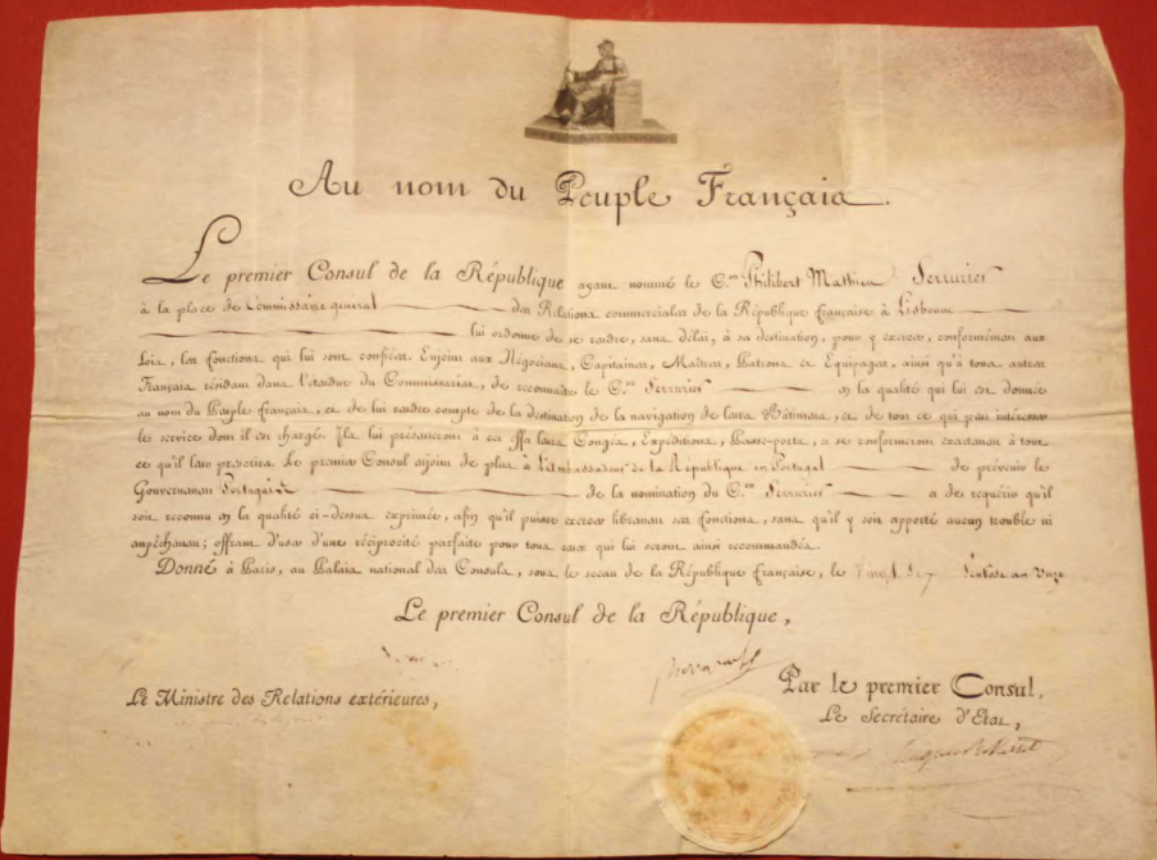 Au nom du Peuple Français.
Le premier Consul de la République ayant nommé le C.en Philibert Mathieu Serrurier
à la place de Commissaire general des Relations commerciales de la République française à Lisbonne
lui ordonne de se rendre, sans délai, à sa destination, pour y exercer, conformément aux
Lois, les fonctions qui lui sont confiées. Enjoint aux Négocians, Capitaines, Maîtres, Patrons et Equipages, ainsi qu'à tous autres
Français résidant dans l'étendue du Commissariat, de reconnaître le C.en Serrurier en la qualité qui lui est donnée
au nom du Peuple français, et de lui rendre compte de la destination de la navigation de leurs Bâtimens, et de tout ce qui peut intéresser
le service dont il est chargé. Ils lui présenteront à cet effet leurs Congés, Expéditions, Passe-ports, et se conformeront exactement à tout
ce qu'il leur prescrira. Le premier Consul enjoint de plus à l'Ambassadeur de la République en Portugal de prévenir le
Gouvernement Portugais de la nomination du C.en Serrurier et de requérir qu'il
soit reconnu en la qualité ci-dessus exprimée, afin qu'il puisse exercer librement ses fonctions, sans qu'il y soit apporté aucun trouble ni
empêchement; offrant d'user d'une réciprocité parfaite pour tous ceux qui lui seront ainsi recommandés.
Donné à Paris, au Palais national des Consuls, sous le sceau de la République française, le Vingt Sept Ventose an Onze
Le premier Consul de la République,
Bonaparte
Par le premier Consul,
Le Ministre des Relations extérieures,
Le Secrétaire d'Etat,
Hugues B. Maret